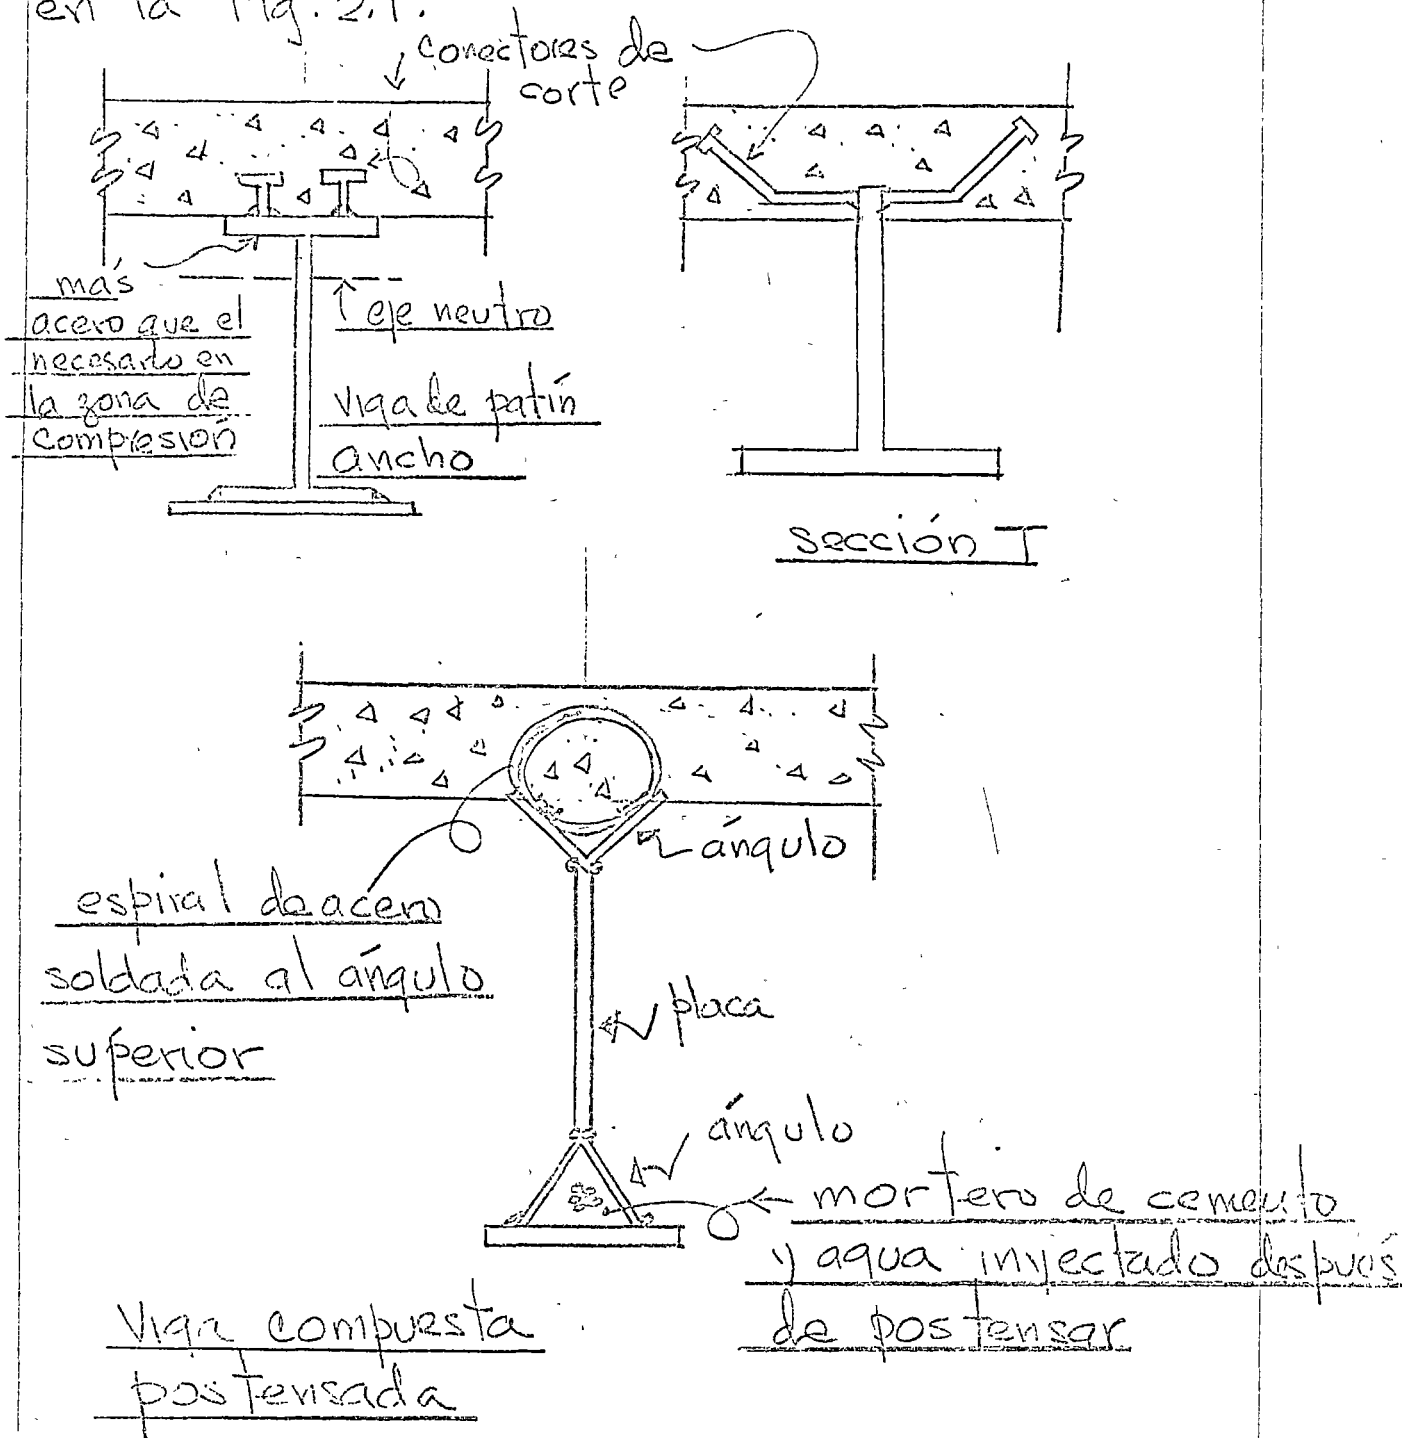 en la Fig. 2.1.
conectores de
corte
más
acero que el
necesario en
la zona de
compresión
eje neutro
viga de patín
ancho
sección T
ángulo
espiral de acero
soldada al ángulo
superior
placa
ángulo
mortero de cemento
y agua inyectado después
de postensar
Viga compuesta
postensada